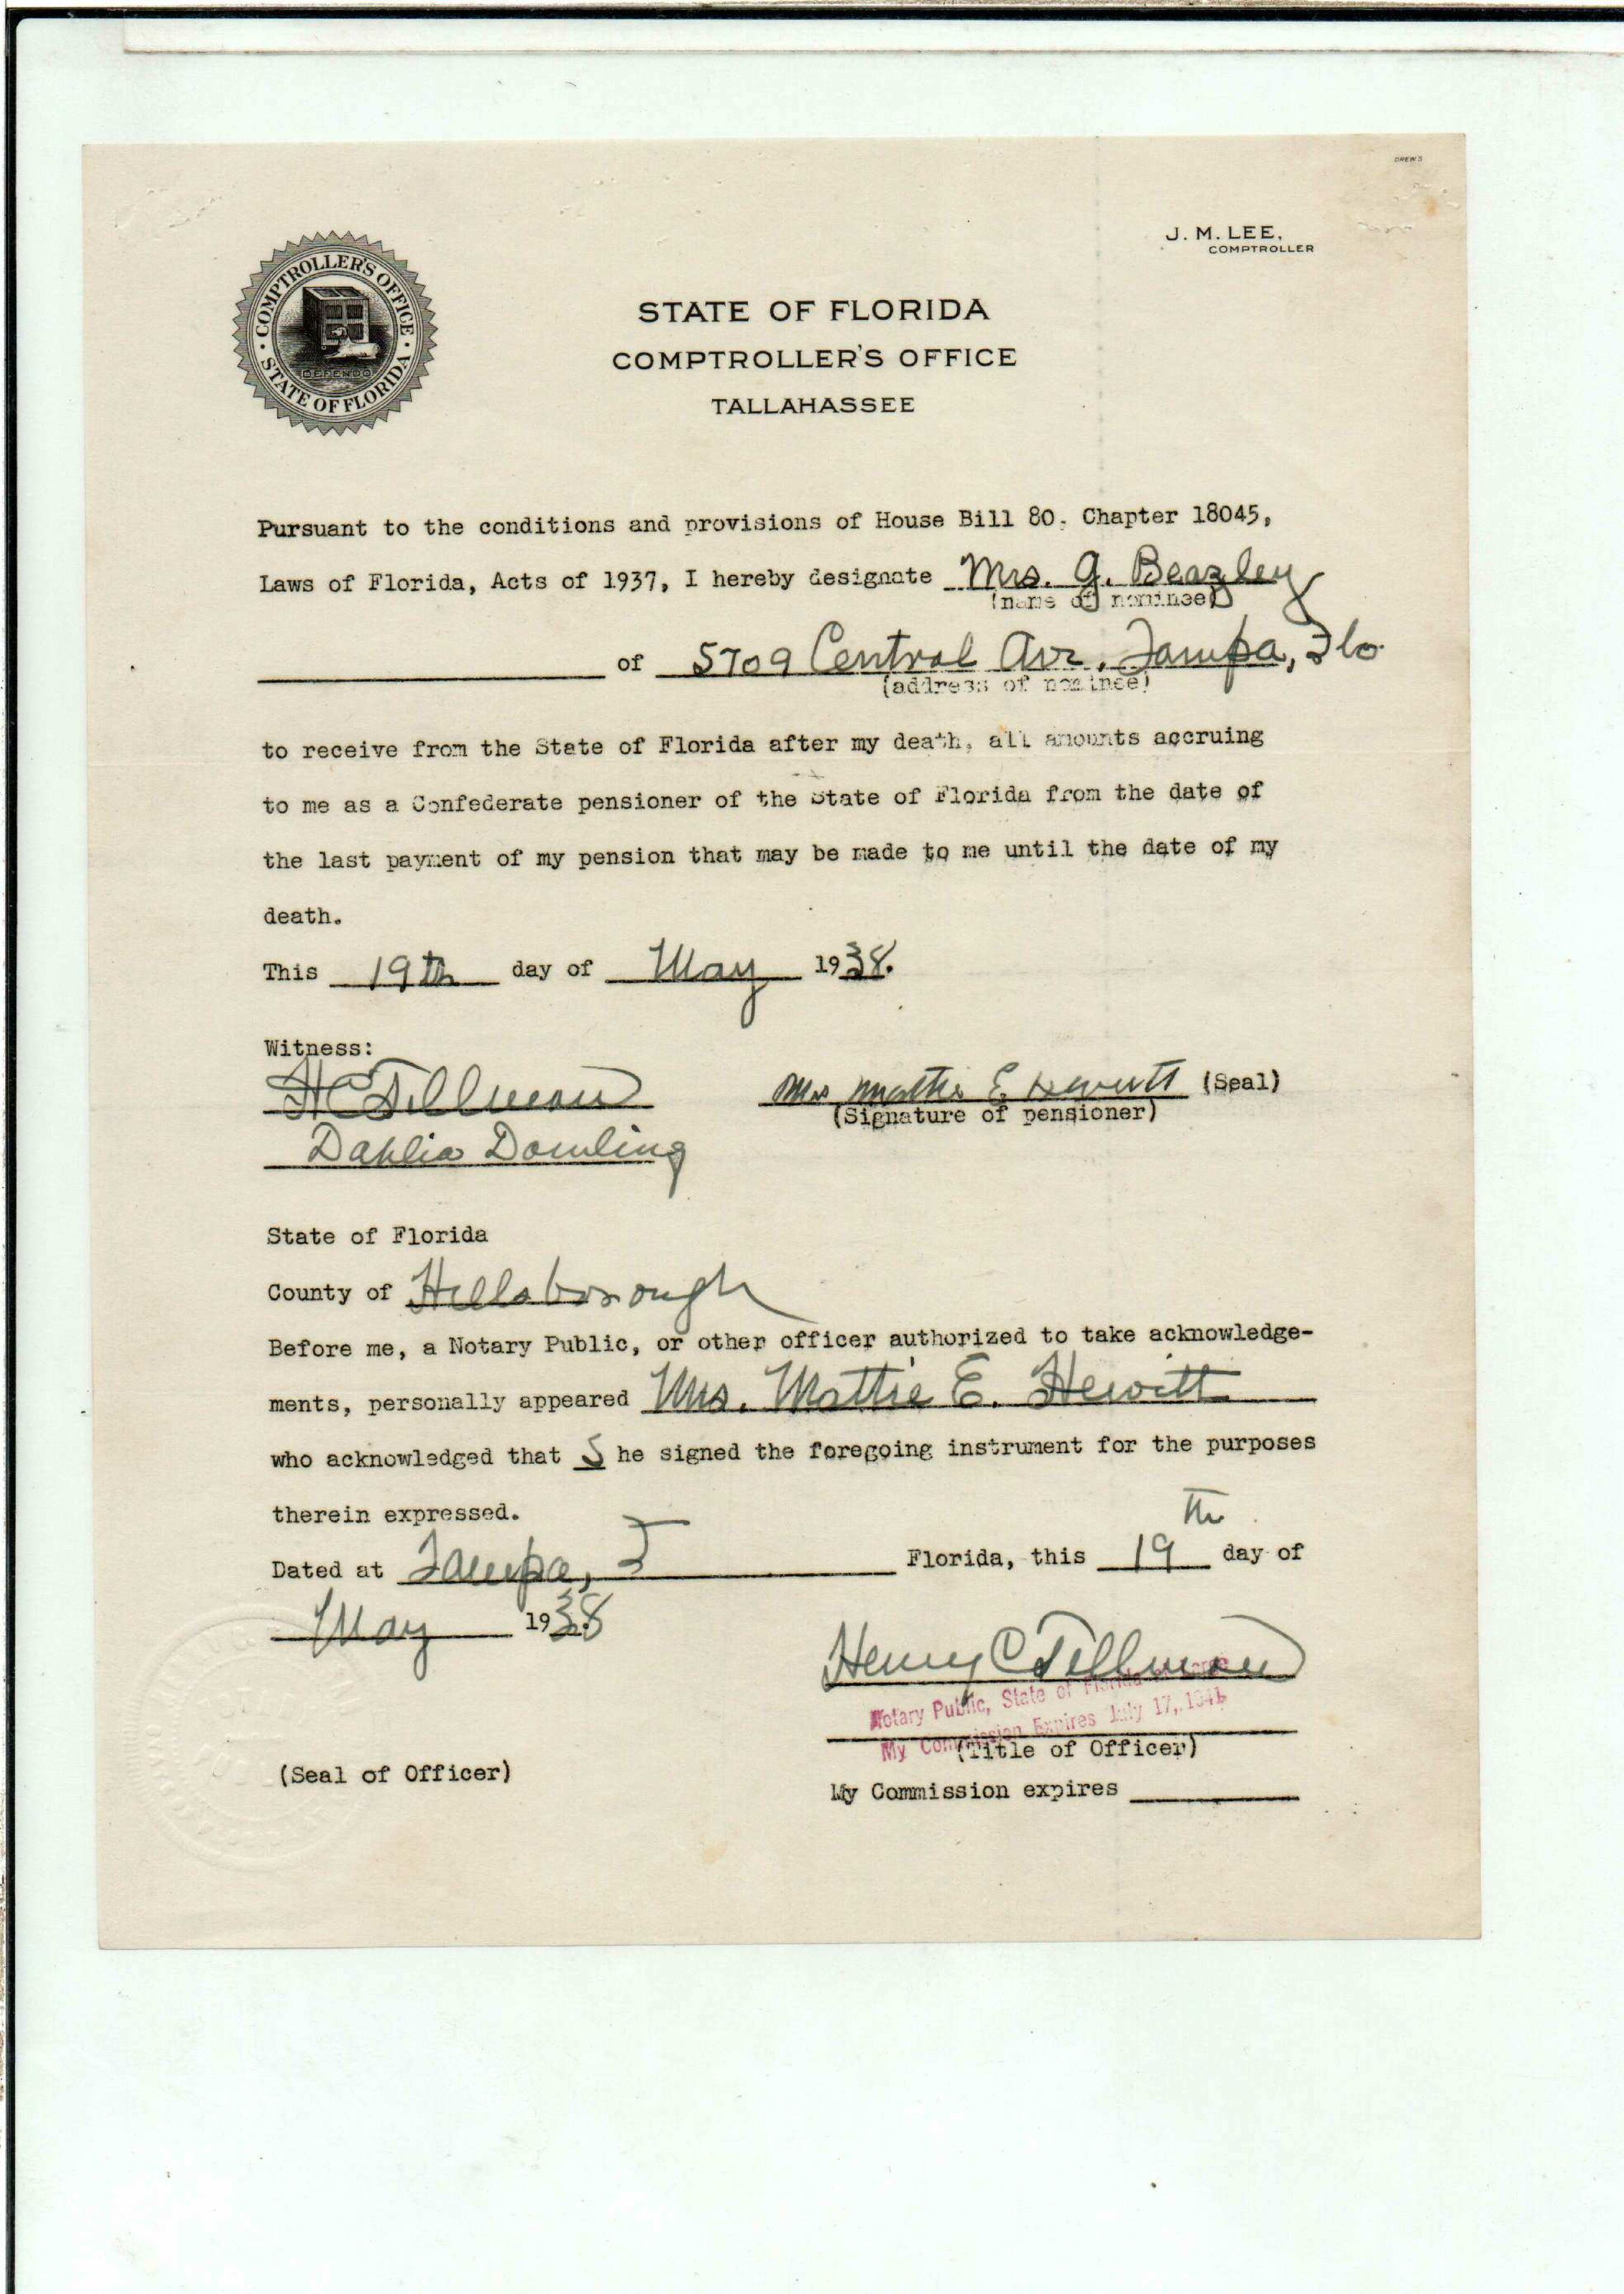 DREWS
J. M. LEE,
COMPTROLLER
COMPTROLLER'S OFFICE
STATE OF FLORIDA
DEFENDO
STATE OF FLORIDA
COMPTROLLER'S OFFICE
TALLAHASSEE
Pursuant to the conditions and provisions of House Bill 80. Chapter 18045,
Laws of Florida, Acts of 1937, I hereby designate Mrs. G. Beazley
(name of nominee)
of 5709 Central Ave. Tampa, Fla
(address of nominee)
to receive from the State of Florida after my death, all amounts accruing
to me as a Confederate pensioner of the State of Florida from the date of
the last payment of my pension that may be made to me until the date of my
death.
This 19th day of May 1938.
Witness:
H C Tillman
Mrs Mattie E Hewitt (Seal)
(Signature of pensioner)
Dahlia Dowling
State of Florida
County of Hillsborough
Before me, a Notary Public, or other officer authorized to take acknowledge-
ments, personally appeared Mrs. Mattie E. Hewitt
who acknowledged that S he signed the foregoing instrument for the purposes
therein expressed.
Dated at Tampa, F Florida, this 19th day of
May 1938
Henry C Tillman
Notary Public, State of Florida
My Commission Expires July 17, 1941
(Title of Officer)
(Seal of Officer)
My Commission expires